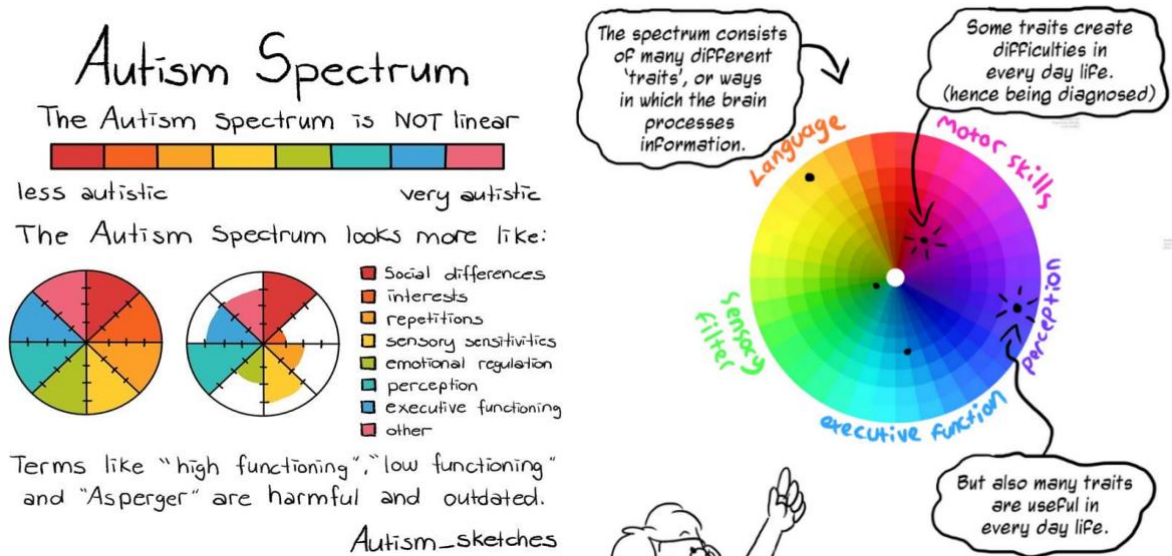 Autism Spectrum
The Autism Spectrum is NOT linear
less autistic
very autistic
The Autism Spectrum looks more like:
Social differences
interests
repetitions
sensory sensitivities
emotional regulation
perception
executive functioning
other
Terms like "high functioning", "low functioning"
and "Asperger" are harmful and outdated.
Autism_sketches
The spectrum consists
of many different
'traits', or ways
in which the brain
processes
information.
Some traits create
difficulties in
every day life.
(hence being diagnosed)
Language
Motor skills
perception
executive function
Sensory
filter
But also many traits
are useful in
every day life.